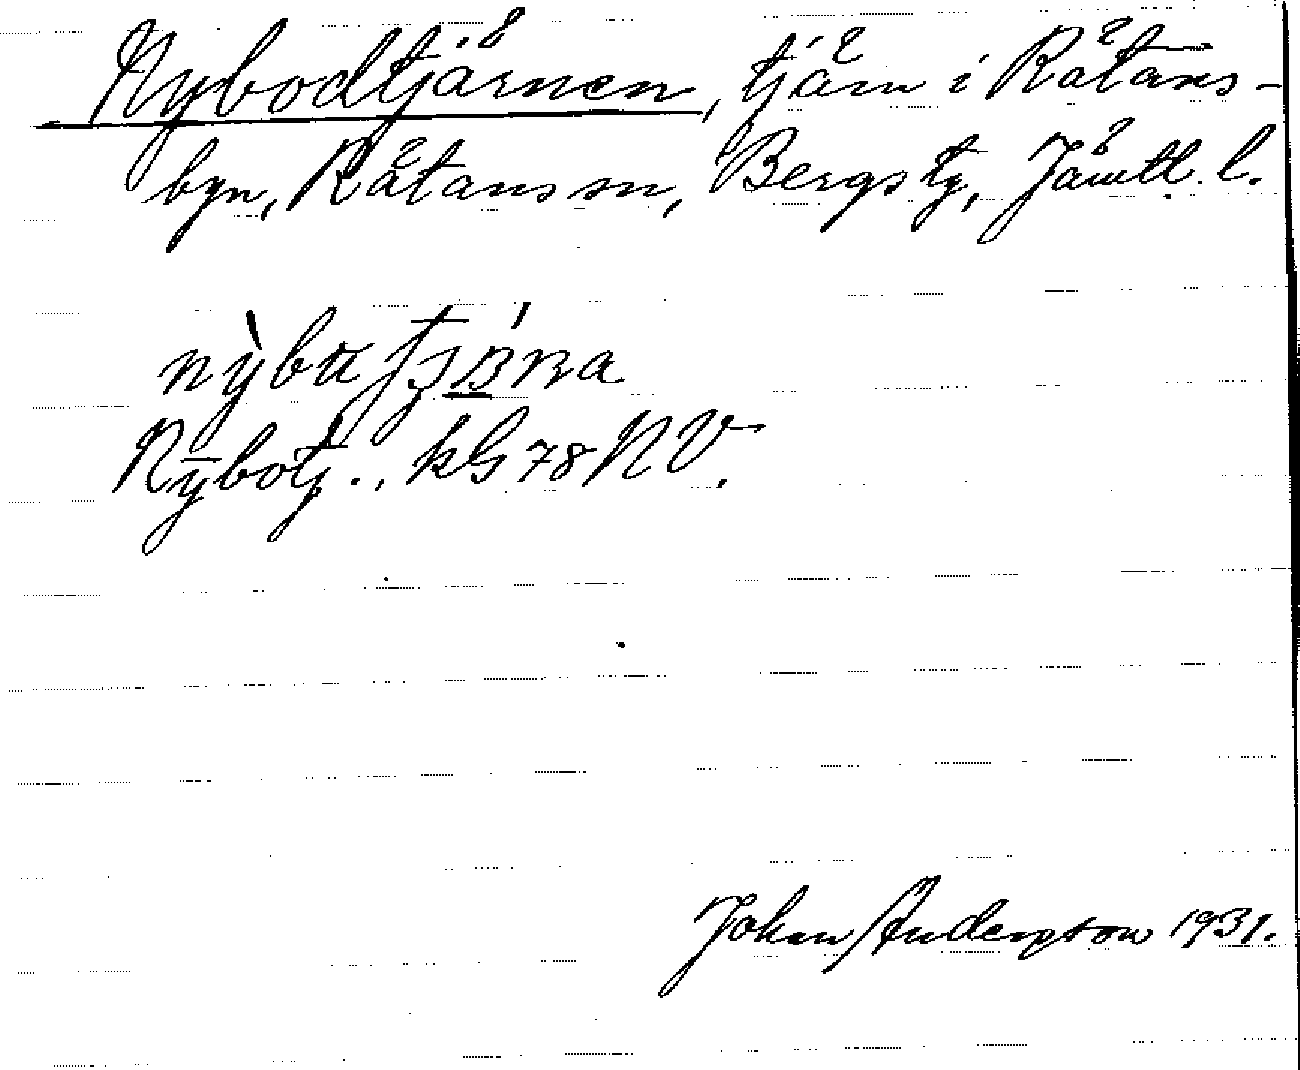 Nybodtjärnen, tjärn i Rätans-
byn, Rätans sn, Bergs tg, Jämtl. l.
Nybotj.., kG 78 NV.
Johan Anderson 1931.